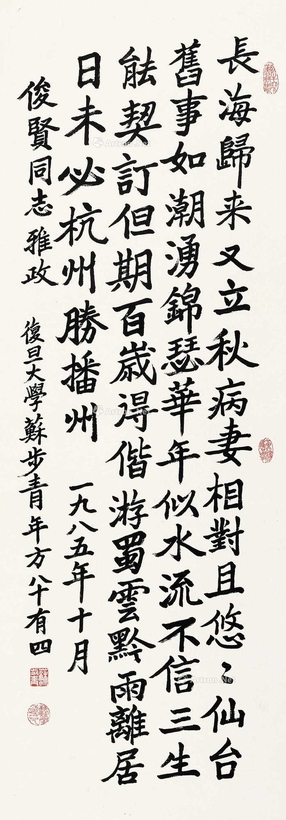 長海歸来又立秋病妻相對且悠〻仙台
舊事如潮湧錦瑟華年似水流不信三生
能契訂但期百歲得偕游蜀雲黔雨離居
日未必杭州勝播州
一九八五年十月
俊賢同志雅政
復旦大學蘇步青年方八十有四